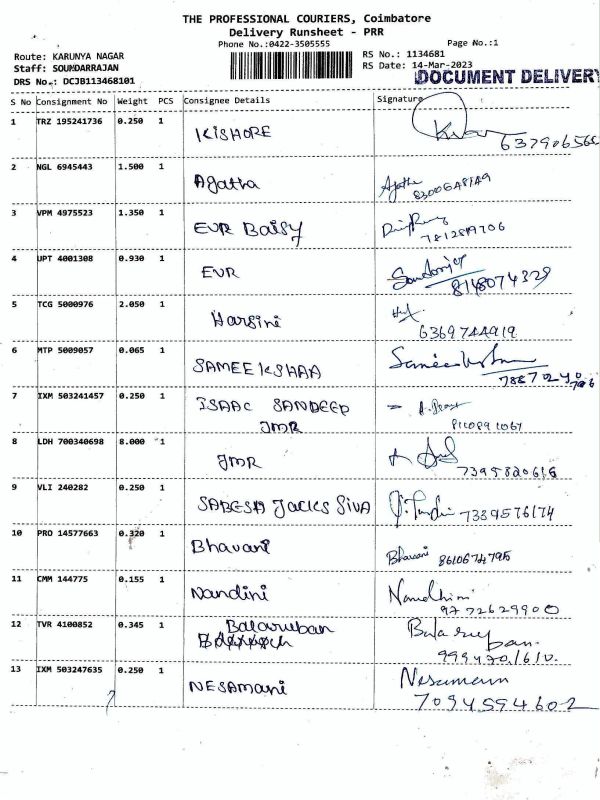 THE PROFESSIONAL COURIERS, Coimbatore
Delivery Runsheet - PRR
Phone No.:0422-3505555
Page No.:1
Route: KARUNYA NAGAR
RS No.: 1134681
Staff: SOUNDARRAJAN
RS Date: 14-Mar-2023
DRS No.: DCJB113468101
DOCUMENT DELIVERY
S No Consignment No Weight PCS Consignee Details Signature
1 TRZ 195241736 0.250 1 KISHORE
2 NGL 6945443 1.500 1 Agatha Agatha
3 VPM 4975523 1.350 1 EVR Baisy
4 UPT 4001308 0.930 1 EVR
8148074329
5 TCG 5000976 2.050 1 Harsini
6369744919
6 MTP 5009057 0.065 1 SAMEEKSHAA
7 IXM 503241457 0.250 1 ISAAC SANDEEP
JMR
8 LDH 700340698 8.000 1 JMR
7395820616
9 VLI 240282 0.250 1 SABESH JACKS SIVA 7339576174
10 PRO 14577663 0.320 1 Bhavani Bhavani 8610674795
11 CMM 144775 0.155 1 Nandini Nandhini
9772629900
12 TVR 4100852 0.345 1 Balaruban
13 IXM 503247635 0.250 1 NESAMANI
7094594602